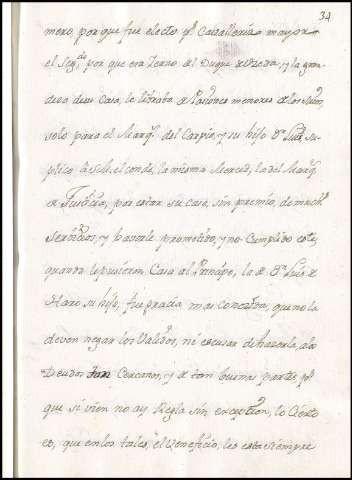 34
mero, por que fue electo p.ª Cavallerizo mayor
el Seg.do por que era Yerno del Duque de Uzeda, y la gran-
deza de su Casa, le libraba de
solo para el Marq.s del Carpio, y su hijo D.n Luis su-
plico à S.M. el conde, la misma Merced, la del Marq.s
de Justicia, por estar su casa, sin premio, de much.s
Servicios, y haverle prometido, y no Cumplido este,
quando le pusieron Casa al Principe, la de D.n Luis de
Haro su hijo, fue gracia mas que no la
deven negar los Validos, ni escusar de hacerla, a los
Deudos tan Cercanos, y de tan buenas partes, p.r
que si vien no ay Regla sin excepcion, lo Cierto
es, que en los tales, el Beneficio, les esta siempre